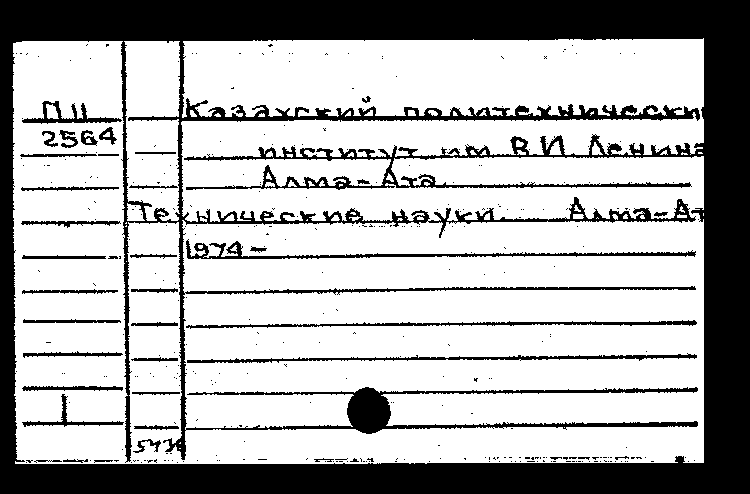 П 11 Казахский политехнически
2564
институт им В.И Ленина
Алма-Ата
Технические науки. Алма-Ат
1974-